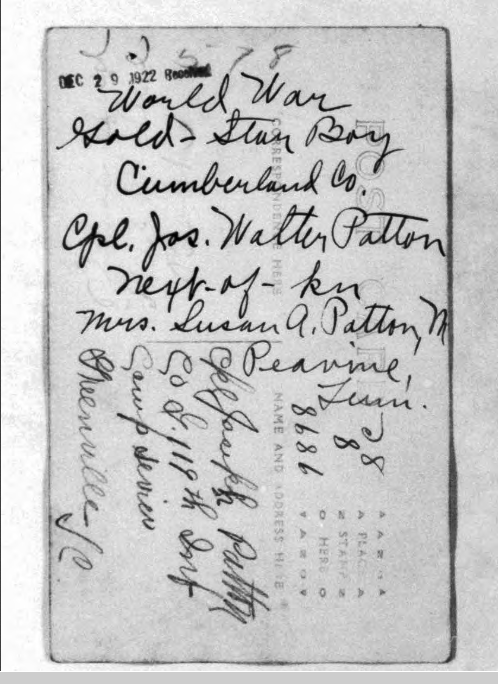 2 2 5 7 8
DEC 29 1922 Received
World War
Gold-Star Boy
Cumberland Co.
Cpl. Jas. Walter Patton
next-of-kin
Mrs. Susan A. Patton, M
Peavine,
Tenn.
Cpl Joseph Patton
Co G. 119th Inf
Camp Sevier
Greenville S C
9898
8
POST CARD
CORRESPONDENCE HERE
NAME AND ADDRESS HERE
PLACE
STAMP
HERE